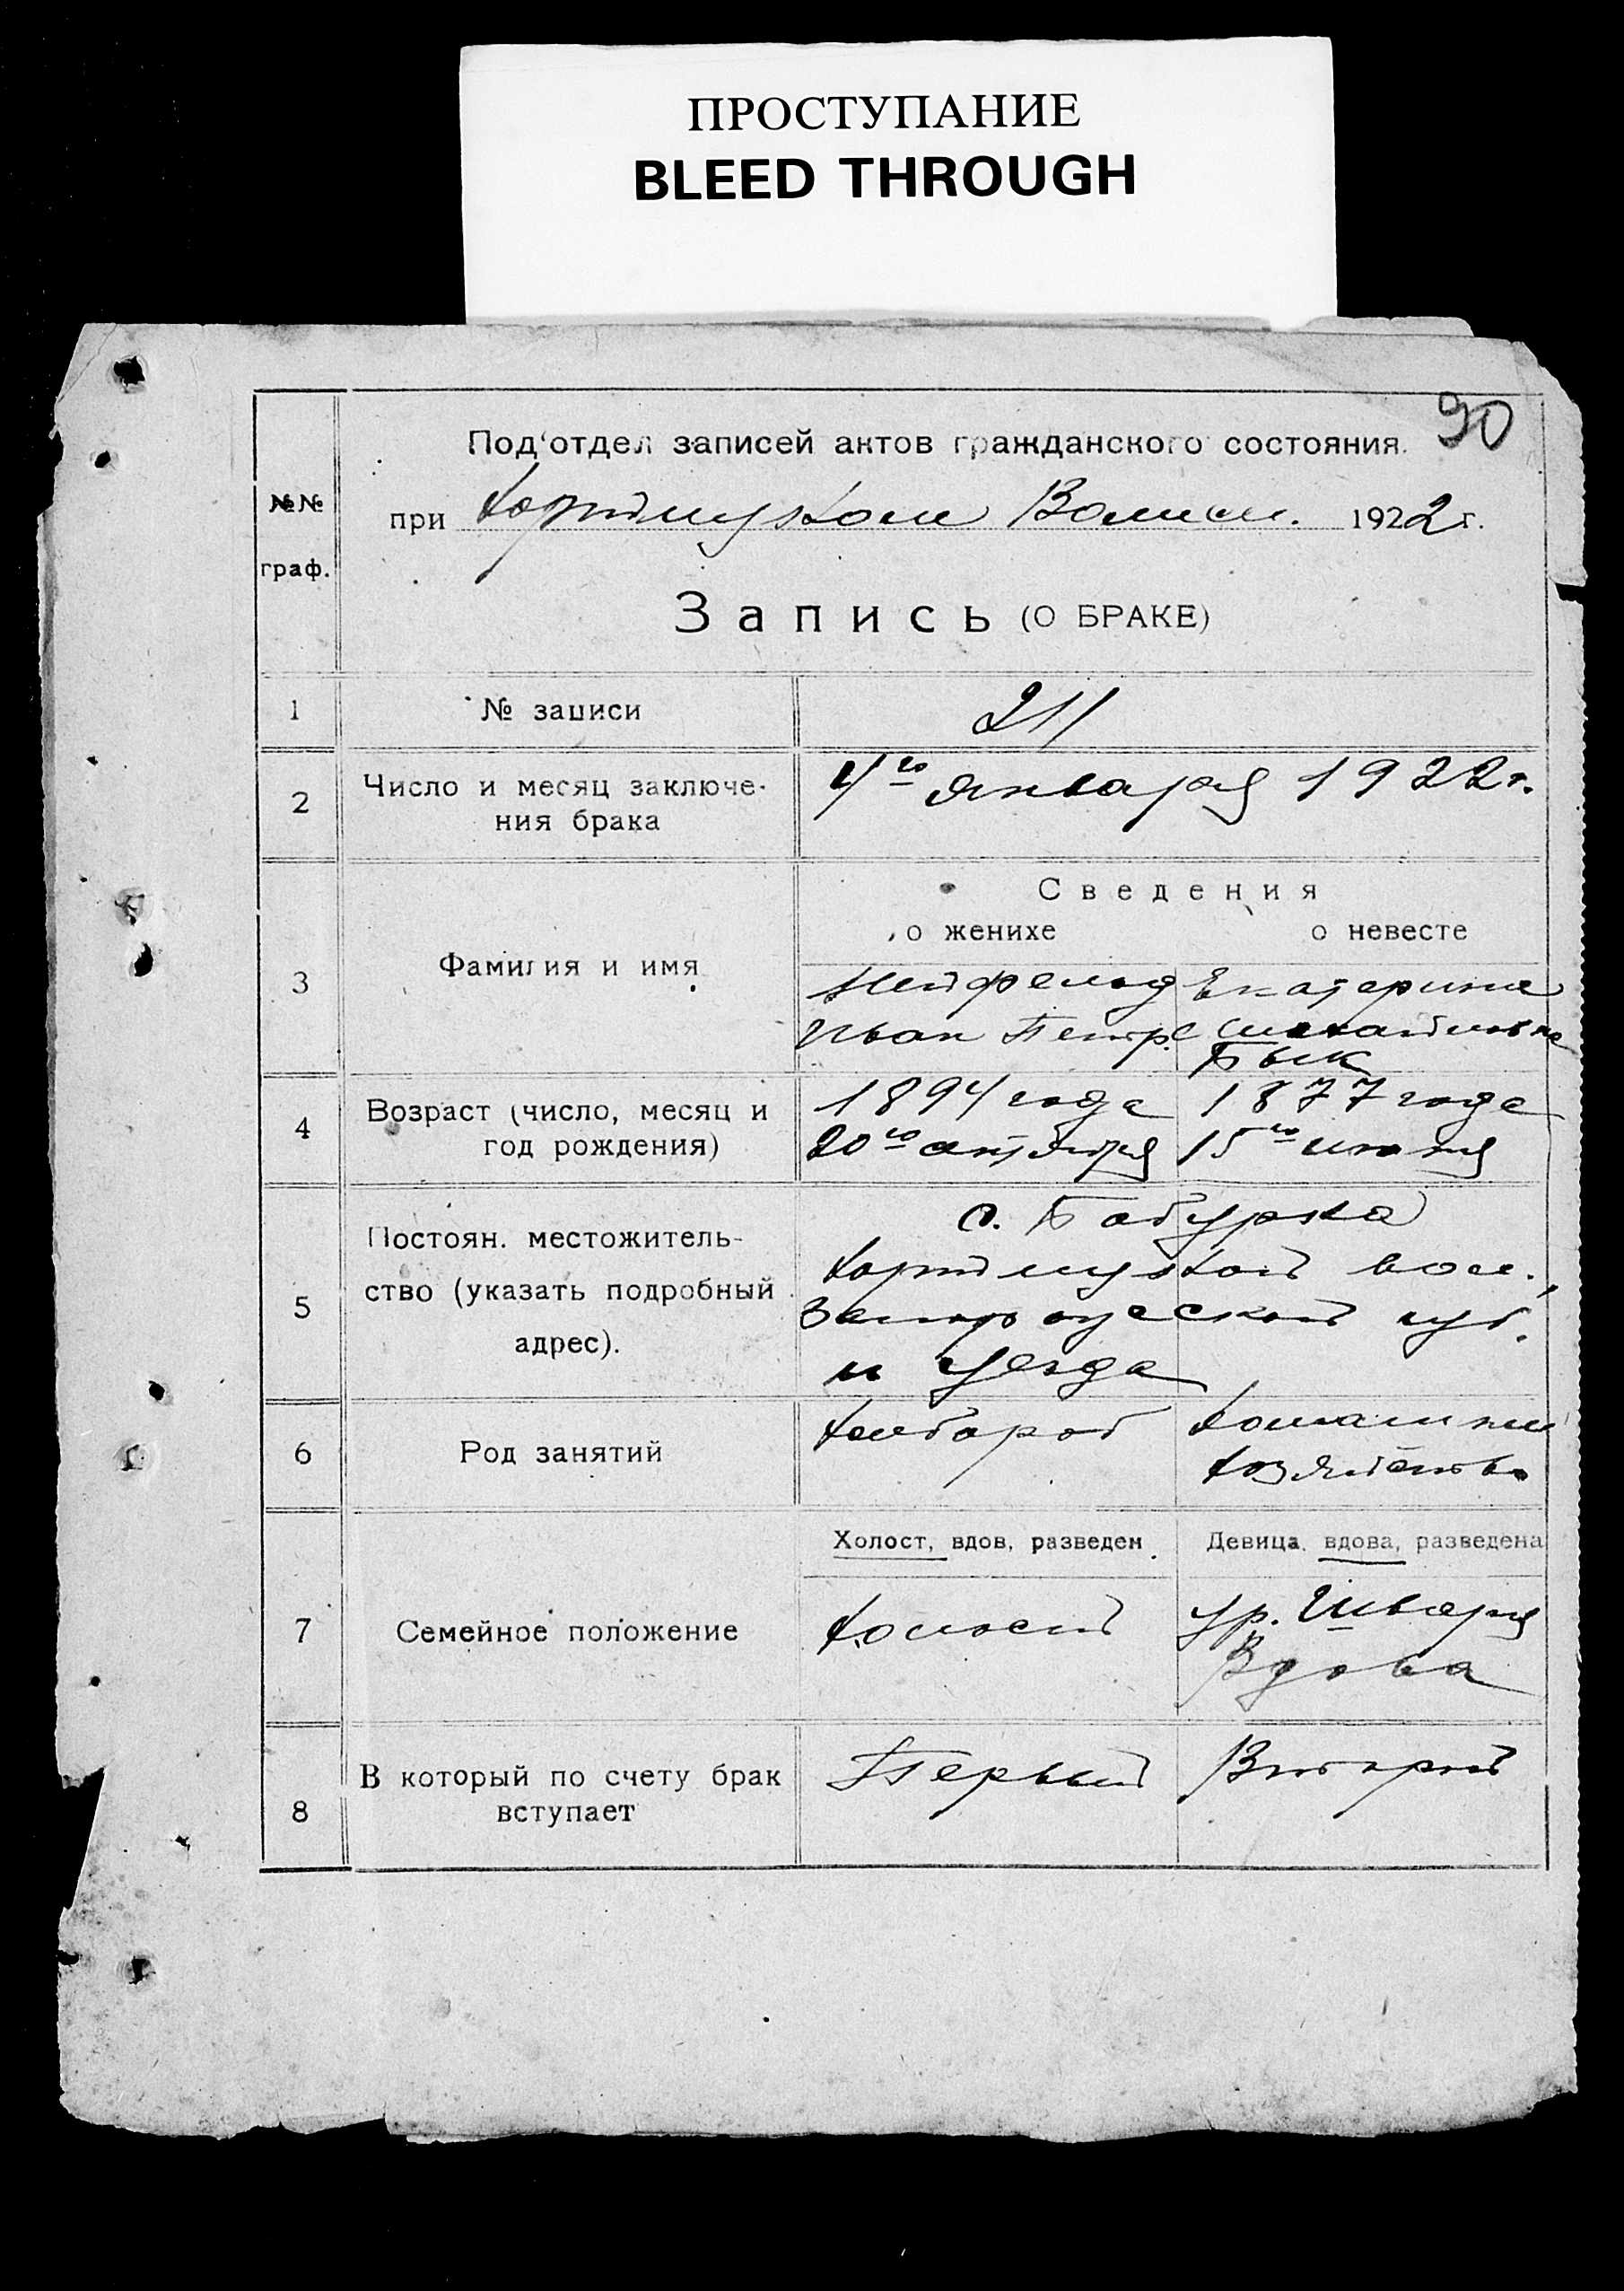 ПРОСТУПАНИЕ
BLEED THROUGH
90
№№
граф.
Под'отдел записей актов гражданского состояния.
при Хортицуком Волисп. 1922 г.
Запись (О БРАКЕ)
1 № записи 211
2 Число и месяц заключе-
ния брака
4го января 1922 г.
Сведения
о женихе о невесте
3 Фамилия и имя
Нейфельд
Иван Петр.
Екатерина
Михайловна
Бык
4 Возраст (число, месяц и
год рождения)
1894 года
20го октября
1877 года
15го июня
5 Постоян. местожитель-
ство (указать подробный
адрес).
с. Бабурка
Хортицукой вол.,
Запорожской губ.
и уезда
6 Род занятий
Хлебороб
Домашнее
хозяйство
Холост, вдов, разведен. Девица, вдова, разведена
7 Семейное положение
Холост
ур. Шварц
Вдова
8 В который по счету брак
вступает
Первый
Второй